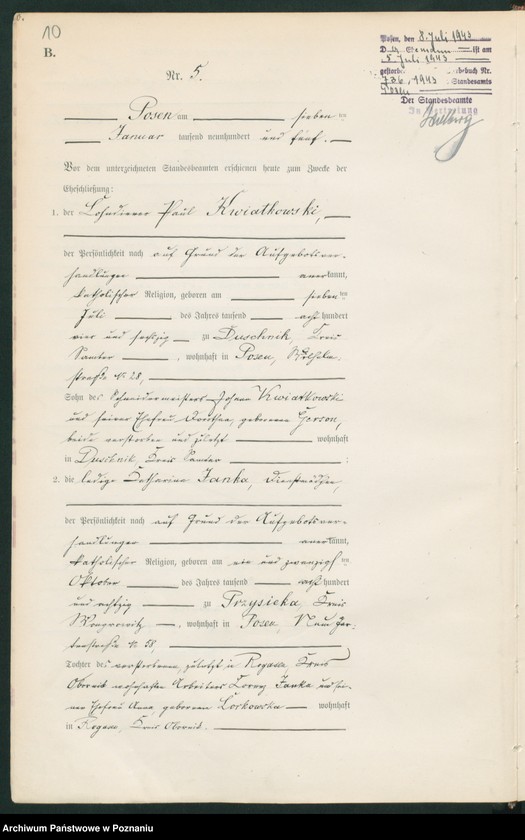 10
B.
Nr. 5.
Posen, den 8. Juli 1943
D. Ehemann ist am
5. Juli 1943
gestorben buch Nr.
736, 1943 Standesamts
Posen
Der Standesbeamte
In Vertretung
Posen am sieben ten
Januar tausend neunhundert und fünf.
Vor dem unterzeichneten Standesbeamten erschienen heute zum Zwecke der
Eheschließung:
1. der Lohndiener Paul Kwiatkowski,
der Persönlichkeit nach auf Grund der Aufgebotsver-
handlungen anerkannt,
katholischer Religion, geboren am sieben ten
Juli des Jahres tausend acht hundert
vier und sechzig zu Duschnik, Kreis
Samter, wohnhaft in Posen, Wilhelm-
straße № 28,
Sohn des Schneidermeisters Johann Kwiatkowski
und seiner Ehefrau Dorothea, geborenen
beide verstorben und zuletzt wohnhaft
in Duschnik, Kreis Samter ;
2. die ledige Katharina Janka, Dienstmädchen,
der Persönlichkeit nach auf Grund der Aufgebotsver-
handlungen anerkannt,
katholischer Religion, geboren am ein und zwanzigsten
Oktober des Jahres tausend acht hundert
und achtzig zu Przysieka, Kreis
Wongrowitz, wohnhaft in Posen, Neue Gar-
tenstraße № 58,
Tochter des verstorbenen, zuletzt in Rogasen, Kreis
Obornik wohnhaften Arbeiters Lorenz Janka und sei-
ner Ehefrau Anna, geborenen wohnhaft
in Rogasen, Kreis Obornik.
Archiwum Państwowe w Poznaniu